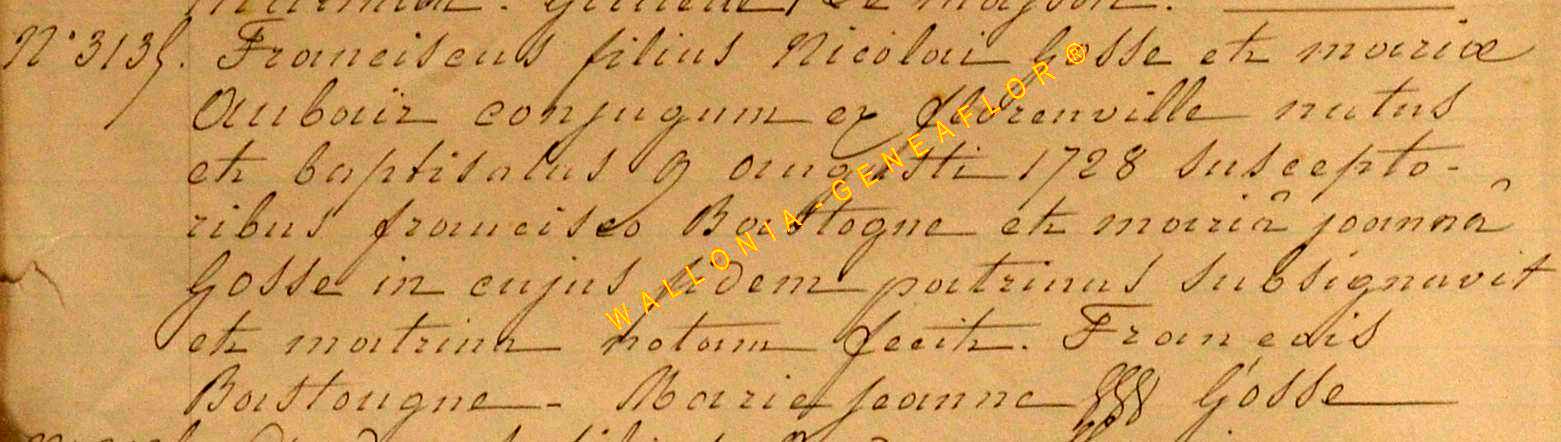 N° 3135. Franciscus filius Nicolai Gosse et mariæ
Aubair conjugum ex florenville natus
et baptisatus 9 augusti 1728 suscepto-
ribus francisco Bastogne et mariâ joannâ
Gosse in cujus fidem patrinus subsignavit
et matrina notam fecit. François
Bastougne - Marie jeanne Gosse
WALLONIA-GENEAFLOR®